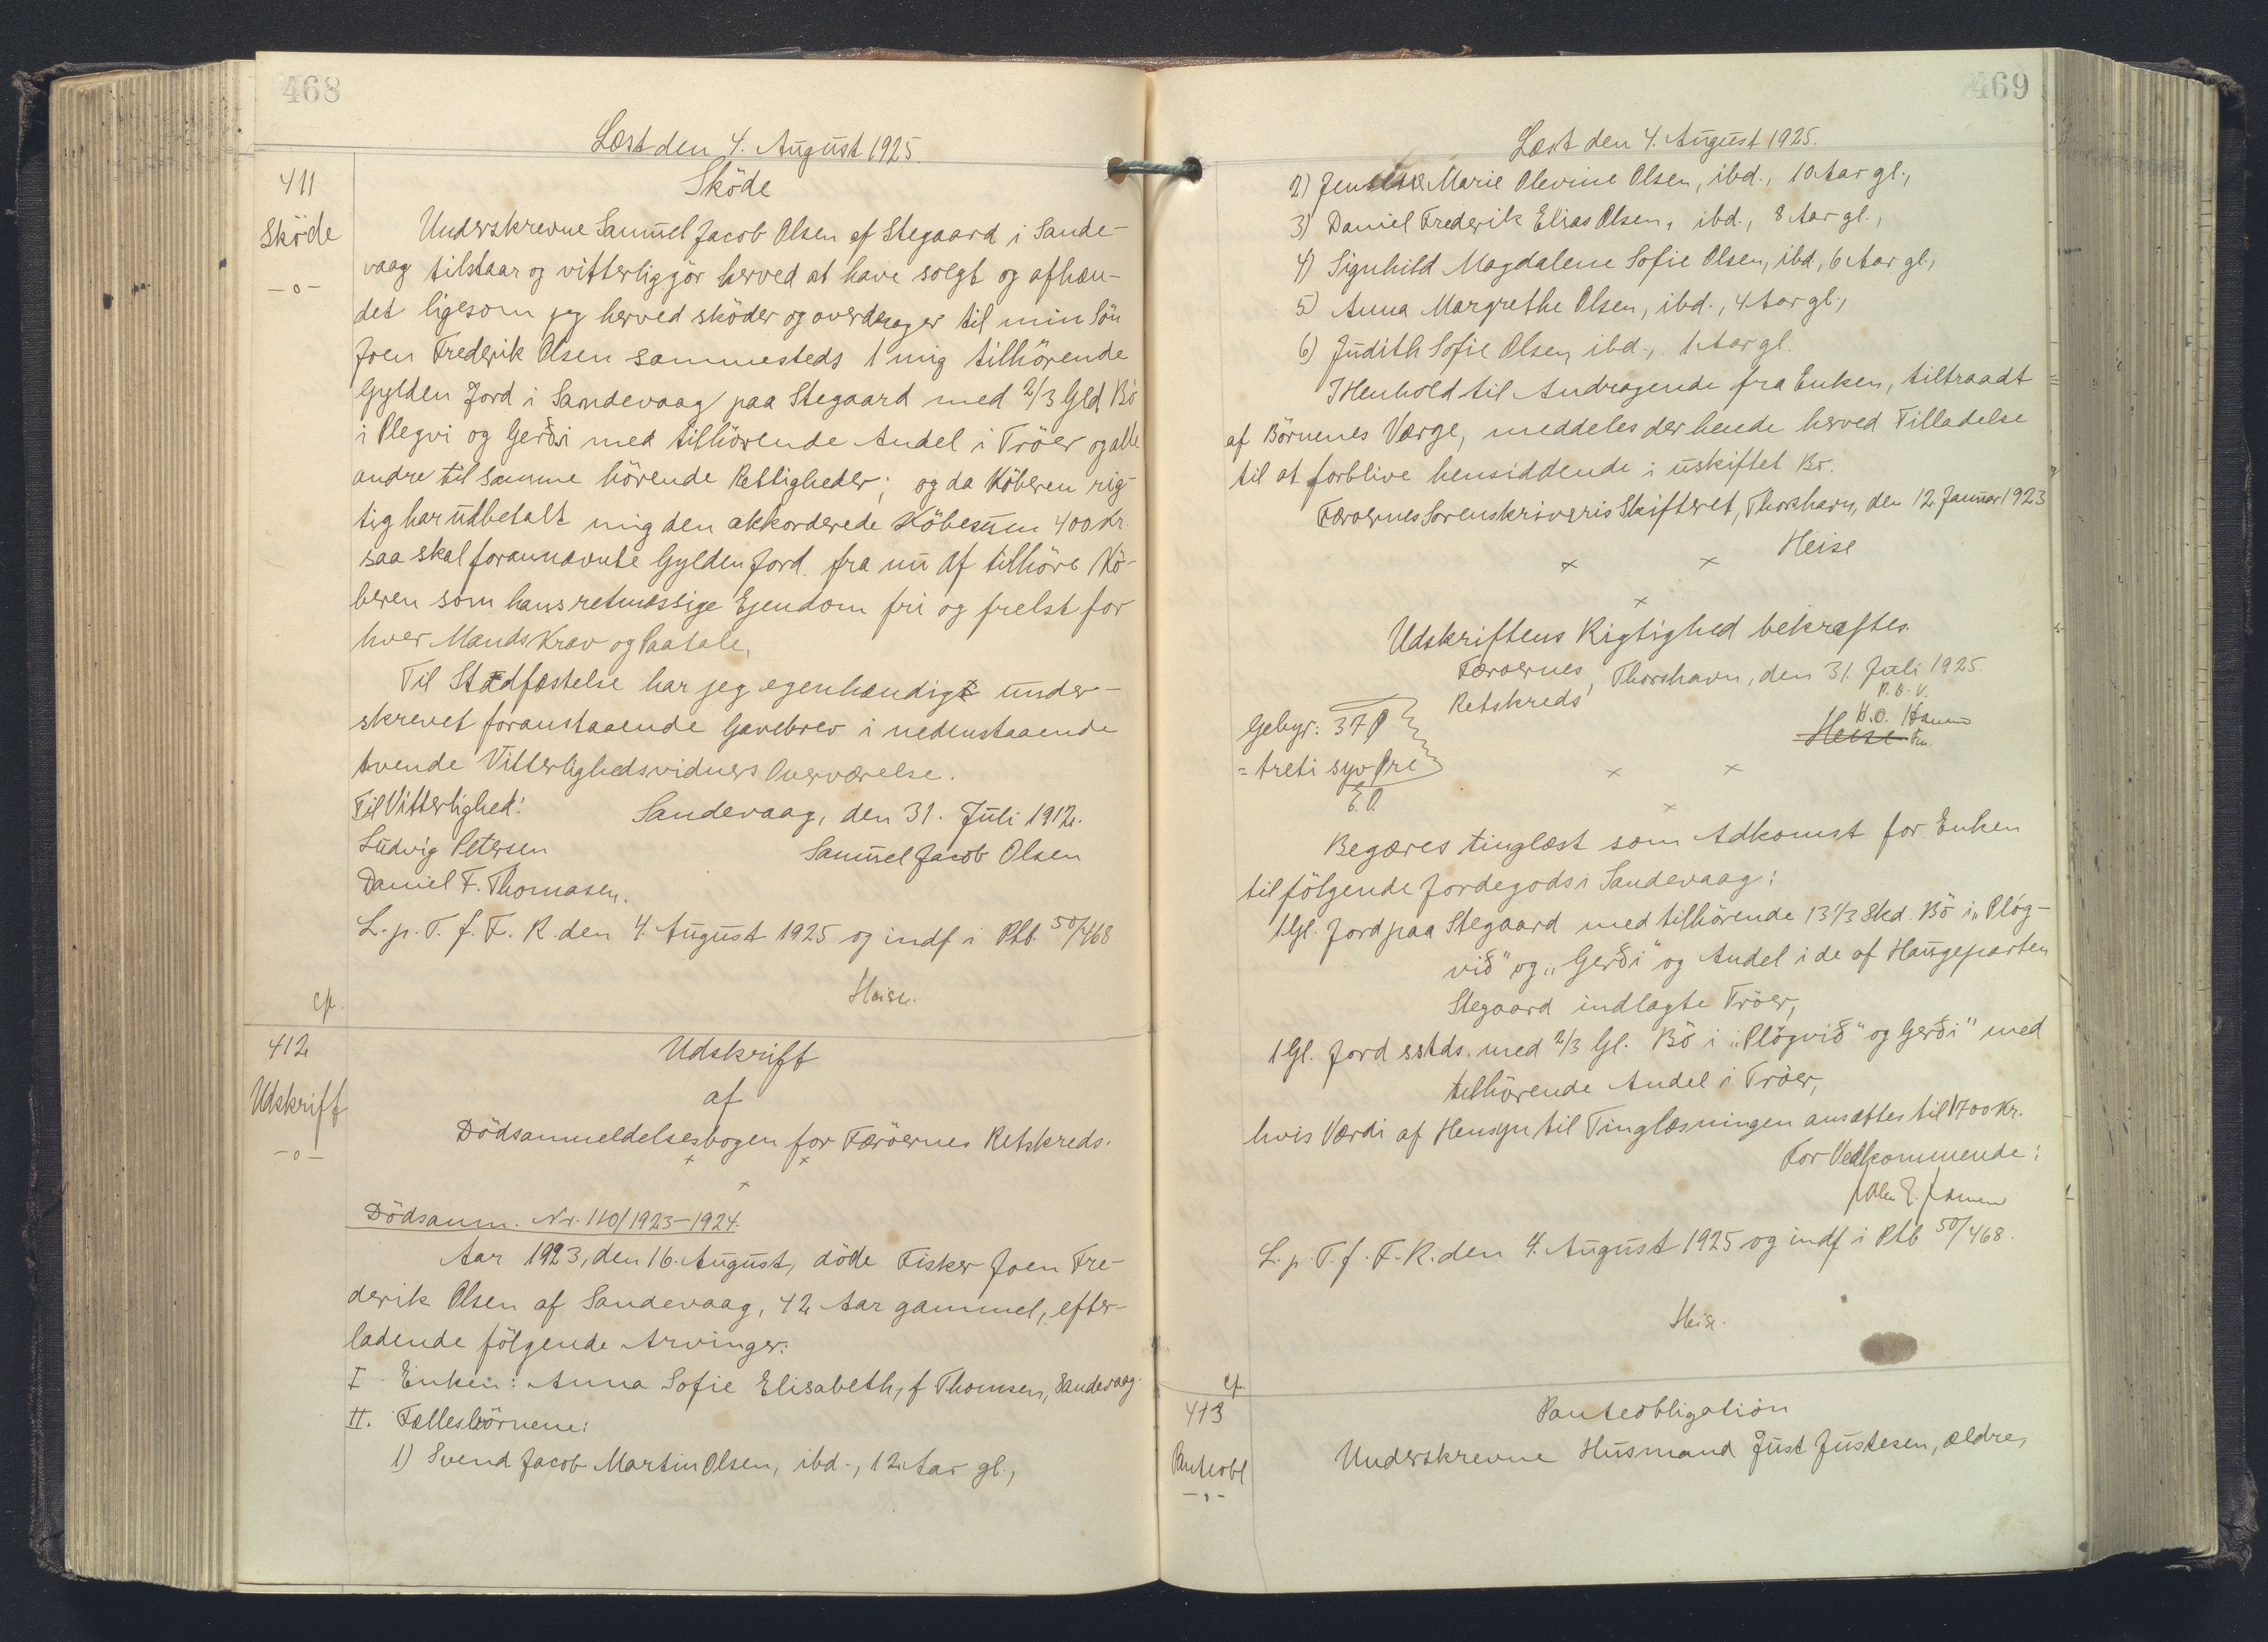 468
Læst den 4. August 1925.
411
Sköde
-o-
Sköde
Underskrevne Samuel Jacob Olsen af Stegaard i Sande-
vaag tilstaar og vitterliggjör herved at have solgt og afhæn-
det ligesom jeg herved sköder og overdrager til min Sön
Joen Frederik Olsen sammesteds 1 mig tilhörende
Gylden Jord i Sandevaag paa Stegaard med 2/3 Gld Bö
i Plegvi og Gerði med tilhörende Andel i Tröer og alle
andre til samme hörende Rettigheder; og da Köberen rig-
tig har udbetalt mig den akkorderede Köbesum 400 Kr.
saa skal forannævnte Gylden Jord fra nu af tilhöre Kö-
beren som hans retmæssige Ejendom fri og frelst for
hver Mands Krav og Paatale.
Til Stadfæstelse har jeg egenhændigt under-
skrevet foranstaaende Gavebrev i nedenstaaende
tvende Vitterlighedsvidners Overværelse.
Til Vitterlighed: Sandevaag, den 31. Juli 1912.
Ludvig Petersen Samuel Jacob Olsen
Daniel F. Thomasen.
L. p. T. f. F. R. den 4. August 1925 og indf. i Ptb. 50/468
Heise.
cfr.
412
Udskrift
-o-
Udskrift
af
Dödsanmeldelsesbogen for Færöernes Retskreds.
x x
x
Dödsanm. Nr. 110/1923-1924.
Aar 1923, den 16. August, döde Fisker Joen Fre-
derik Olsen af Sandevaag, 42 Aar gammel, efter-
ladende fölgende Arvinger:
I Enken: Anna Sofie Elisabeth, f Thomsen, Sandevaag.
II. Fællesbörnene:
1) Svend Jacob Martin Olsen, ibd., 12 Aar gl.,
469
Læst den 4. August 1925.
2) Marie Olevine Olsen, ibd., 10 Aar gl.,
3) Daniel Frederik Elias Olsen, ibd., 8 Aar gl.,
4) Signhild Magdalene Sofie Olsen, ibd., 6 Aar gl.,
5) Anna Margrethe Olsen, ibd., 4 Aar gl.,
6) Judith Sofie Olsen, ibd., 1 Aar gl.
I Henhold til Andragende fra Enken, tiltraadt
af Börnenes Værge, meddeles der hende herved Tilladelse
til at forblive hensiddende i uskiftet Bo.
Færoernes Sorenskriveris Skifteret, Thorshavn, den 12. Januar 1923
Heise
x x
x
Udskriftens Rigtighed bekræftes.
Færoernes Retskreds, Thorshavn, den 31. Juli 1925.
P. D. V.
H. O. Hansen
Heise Fm.
Gebyr: 37 Ø
= treti syv Øre
E. O.
x x
x
Begæres tinglæst som Adkomst for Enken
til fölgende Jordegods i Sandevaag:
1 Gl. Jord paa Stegaard med tilhörende 13 1/3 Skd. Bö i „Plóg-
við" og „Gerði" og Andel i de af Haugeparten
Stegaard indlagte Tröer,
1 Gl. Jord sstds. med 2/3 Gl. Bö i „Plógvið" og Gerði" med
tilhörende Andel i Tröer,
hvis Værdi af Hensyn til Tinglæsningen ansættes til 1700 Kr.
For Vedkommende:
L. p. T. f. F. R. den 4. August 1925 og indf i Ptb 50/468.
Heise.
cfr.
413
Panteobl
-o-
Panteobligation
Underskrevne Husmand Just Justesen, ældre,